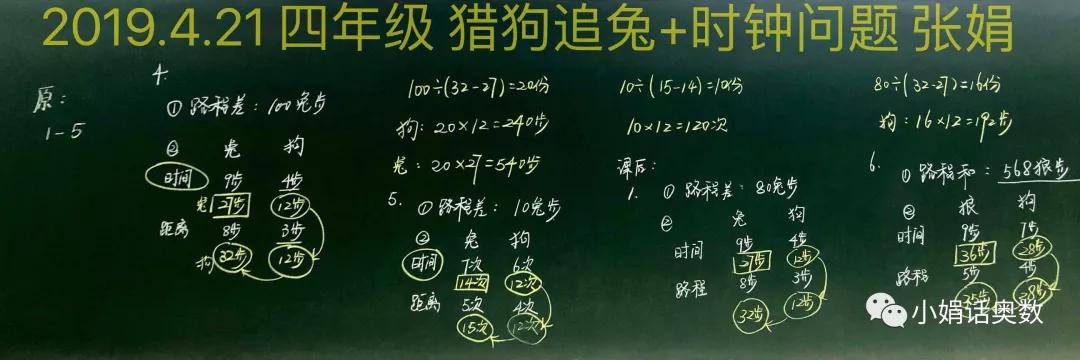 2019.4.21 四年级 猎狗追兔+时钟问题 张娟
原:
1-5
4.
① 路程差: 100兔步
② 兔 狗
时间 9步 4步
兔 27步 12步
距离 8步 3步
狗 32步 12步
100÷(32-27)=20份
狗: 20×12=240步
兔: 20×27=540步
5. ① 路程差: 10兔步
② 兔 狗
时间 7次 6次
14次 12次
距离 5次 4次
15次 12次
10÷(15-14)=10份
10×12=120次
课后:
1. ① 路程差: 80兔步
② 兔 狗
时间 9步 4步
27步 12步
路程 8步 3步
32步 12步
80÷(32-27)=16份
狗: 16×12=192步
6. ① 路程和: 568狼步
② 狼 狗
时间 9步 7步
36步 28步
路程 5步 4步
35步 28步
小娟话奥数